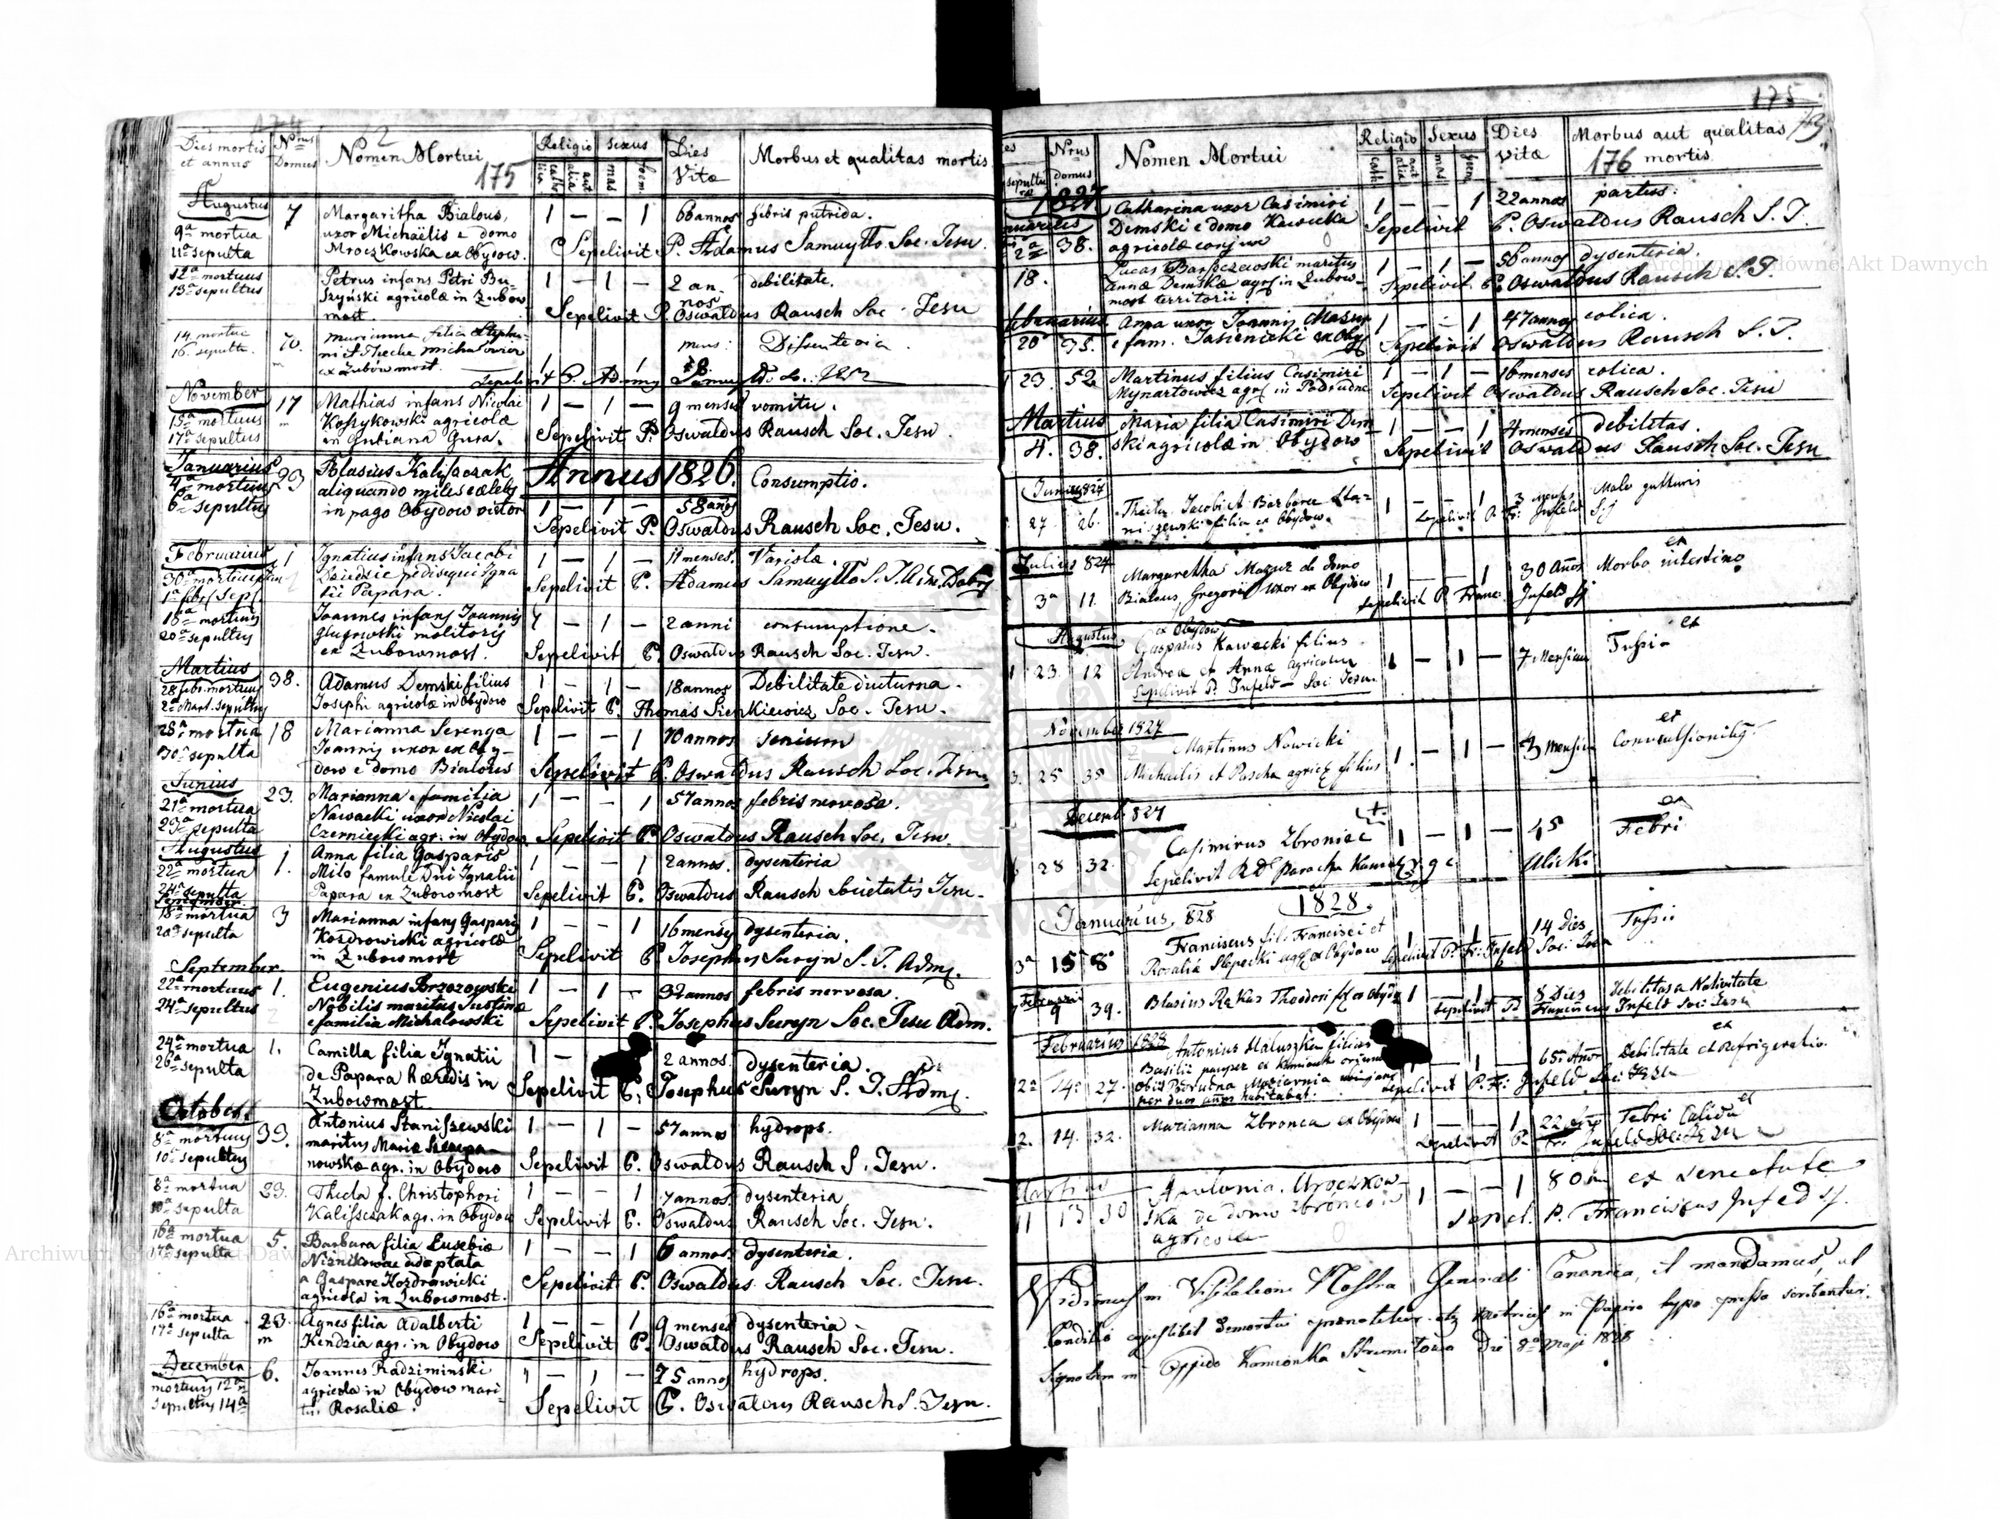 Dies mortis et annus
Nrus Domus
Nomen Mortui
175
Religio
Sexus
Dies Vitæ
Morbus et qualitas mortis
Augustus
9a mortua
11a sepulta
7
Margaritha Bialous,
uxor Michaëlis e domo
Mroczkowska ex Obydow.
1 — — 1
66 annos
febris putrida.
Sepelivit P. Adamus Samuytto Soc. Jesu.
12a mortuus
13a sepultus
Petrus infans Petri Bu-
szyński agricolæ in Zubow
most.
1 — 1 —
2 an-
nos
debilitate.
Sepelivit P. Oswaldus Rausch Soc. Jesu
14 mortua
16. sepulta.
70.
Marianna filia Stepha-
ni et Theclæ
ex Zubowmost
Dissenteria
November
15a mortuus
17a sepultus
17
Mathias infans Nicolai
Kossykowski agricolæ
in
1 — 1 —
9 menses
vomitu.
Sepelivit P. Oswaldus Rausch Soc. Jesu.
Januarius
4a mortuus
6a sepultus
93
Blasius Kalisczak
aliquando miles cælebs
in pago Obydow victor
Annus 1826.
Consumptio.
1 — 1 —
58 años
Sepelivit P. Oswaldus Rausch Soc. Jesu.
Februarius
1
Ignatius infans Jacobi
pedisequi Igna
tii Papara.
1 — 1
11 menses.
Variolæ.
Sepelivit P. Adamus Samuytto S. J.
16a mortuus
20a sepultus
Joannes infans Joannis
molitoris
ex Zubowmost.
1 — 1 —
2 anni
consumptione.
Sepelivit P. Oswaldus Rausch Soc. Jesu.
Martius
28 febr. mortuus
2a Mart. sepultus
38.
Adamus Demski filius
Josephi agricolæ in Obydow
1 — 1 —
18 annos
Debilitate diuturna.
Sepelivit P. Thomas Sienkiewicz Soc. Jesu.
28a mortua
30a sepulta
18
Marianna Serenga
Joannis uxor ex Oby-
dow e domo Bialous
1 — — 1
70 annos
senium
Sepelivit P. Oswaldus Rausch Soc. Jesu
Junius
21a mortua
23a sepulta
23.
Marianna e familia
Nawacki uxor Nicolai
Czerniecki agr. in Obydow
1 — — 1
57 annos
febris nervosa.
Sepelivit P. Oswaldus Rausch Soc. Jesu.
Augustus
22a mortua
24a sepulta
1.
Anna filia Gasparis
Milo famuli Dni Ignatii
Papara ex Zubowmost
1 — — 1
2 annos.
dysenteria
Sepelivit P. Oswaldus Rausch Societatis Jesu.
September
18a mortua
20a sepulta
3
Marianna infans Gasparis
Kozdrowicki agricolæ
in Zubowmost
1 — — 1
16 menses
dysenteria.
Sepelivit P. Josephus Suryn S. J. Adm.
September.
22a mortuus
24a sepultus
1.
Eugenius Brzozowski
Nobilis maritus Justinæ
e familia Michalowski
1 — 1 —
32 annos
febris nervosa.
Sepelivit P. Josephus Suryn Soc. Jesu Adm.
24a mortua
26a sepulta
1.
Camilla filia Ignatii
de Papara hæredis in
Zubowmost
1 —
2 annos
dysenteria.
Sepelivit P. Josephus Suryn S. J. Adm.
October
8a mortuus
10a sepultus
39.
Antonius Staniszewski
maritus Mariæ
nowskæ agr. in Obydow
1 — 1 —
57 annos
hydrops.
Sepelivit P. Oswaldus Rausch S. Jesu.
8a mortua
10a sepulta
23.
Thecla f. Christophori
Kalisczak agr. in Obydow
1 — — 1
7 annos
dysenteria
Sepelivit P. Oswaldus Rausch Soc. Jesu.
16a mortua
17a sepulta
5.
Barbara filia Eusebiæ
Niznikowae adaptata
a Gaspare Kozdrowicki
agricola in Zubowmost.
1 — — 1
6 annos
dysenteria.
Sepelivit P. Oswaldus Rausch Soc. Jesu.
16a mortua
17a sepulta
23.
Agnes filia Adalberti
Kendzia agr. in Obydow
1 — — 1
9 menses
dysenteria
Sepelivit P. Oswaldus Rausch Soc. Jesu.
December
mortuus 12a
sepultus 14a
6.
Joannes Radziminski
agricola in Obydow mari-
tus Rosaliæ.
1 — 1 —
75 annos
hydrops.
Sepelivit P. Oswaldus Rausch S. Jesu.
175
Nrus domus
Nomen Mortui
Religio
Sexus
Dies vitæ
Morbus aut qualitas
mortis
176
1827
38.
Catharina uxor Casimiri
Demski e domo Kawecka
agricolæ conjux
1 — — 1
22 annos
partus.
Sepelivit P. Oswaldus Rausch S. J.
18.
Lucas Barszczewski maritus
Annæ Demskæ agr. in Zubow-
most territorii.
1 — 1 —
56 annos
dysenteria
Sepelivit P. Oswaldus Rausch S. J.
Februarius
20
35.
Anna uxor Joannis Mazur
e fam. Jasienicki ex Obyd
1 — — 1
47 annos
colica.
Sepelivit Oswaldus Rausch S. J.
23.
52
Martinus filius Casimiri
Mynartowicz agr. in Podrudne
1 — 1 —
16 menses
colica.
Sepelivit Oswaldus Rausch Soc. Jesu
Martius
4.
38.
Maria filia Casimiri Dem
ski agricolæ in Obydow
1 — — 1
4 menses
debilitas.
Sepelivit Oswaldus Rausch Soc. Jesu
Junius 827
27
26.
Thecla Jacobi et Barbaræ Sta-
niszewski filia ex Obydow.
1 — — 1
Malo gutturis
Julius 827
3a
11.
Margaretha Mazur de domo
Bialous, Gregorii uxor ex Obydow
1 — — 1
30 Años
Morbo intestino
Sepelivit P. Franc. Infeld SJ
Augustus
23
12
ex Obydow
Gasparus Kawecki filius
Andreæ et Annæ agricolar.
Sepelivit P. Infeld — Soc. Jesu.
1 — 1 —
7 Mensium
ex
Tussi
November 1827
25
35
Martinus Nowicki
Michaelis et agricol filius
1. — 1 —
3 mensium
ex
Convulsionibus.
Decemb 827
28
32.
Casimirus Zbroniec
Sepelivit
1 — 1 —
45
ex
Febri
Januarius, 828
1828.
15
8
Franciscus fil. Francisci et
Rosaliæ Slopecki agr. ex Obydow
14 Dies
Tussi
Sepelivit P. Fr: Infeld Soc. Jesu
9
39.
Blasius Rakus Theodori fil ex Obydow
8 Dies
Debilitas a Nativitate
Sepelivit P. Franciscus Infeld Soc: Jesu
Februarius 1828
14.
27.
Antonius Haluszka filius
Basilii pauper ex Kamionk
per duos años habitabat.
65. Anor
ex
Debilitate et Refrigeratio.
Sepelivit P. Fr: Infeld Soc: Jesu
14.
32.
Marianna Zbroncia ex Obydow
1 — — 1
22
Febri Calida
Sepelivit P. Fr: Infeld Soc: Jesu
11
13
30
Apolonia. Mroczkow-
ska de domo Zbroncow
agricola
1 — — 1
80
ex Senectute
Sepel. P. Franciscus Infeld SJ.
Vidimus in Visitatione Nostra Generali Canonica, et mandamus, ut
Conditio cujuslibet Demortui prænotetur, et in papiro typo presso scribantur.
Signatum in Oppido Kamionka Strumilowa Die 8a Maji 1828
Archiwum Główne Akt Dawnych
Archiwum Główne Akt Dawnych